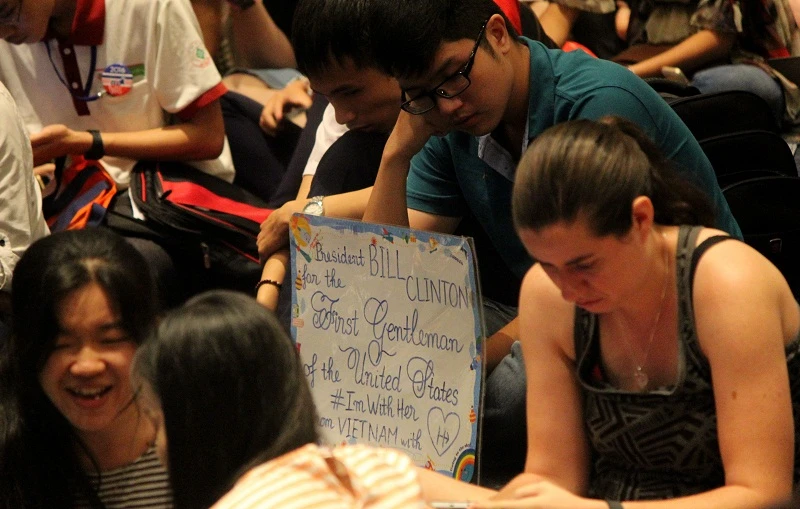 President BILL
for the CLINTON
First Gentleman
of the United States
#ImWithHer
VIETNAM with
H